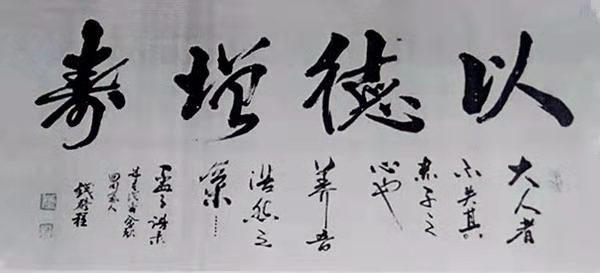 以德增寿
大人者
不失其
赤子之
心也
养吾
浩然之
氣……
孟子语录